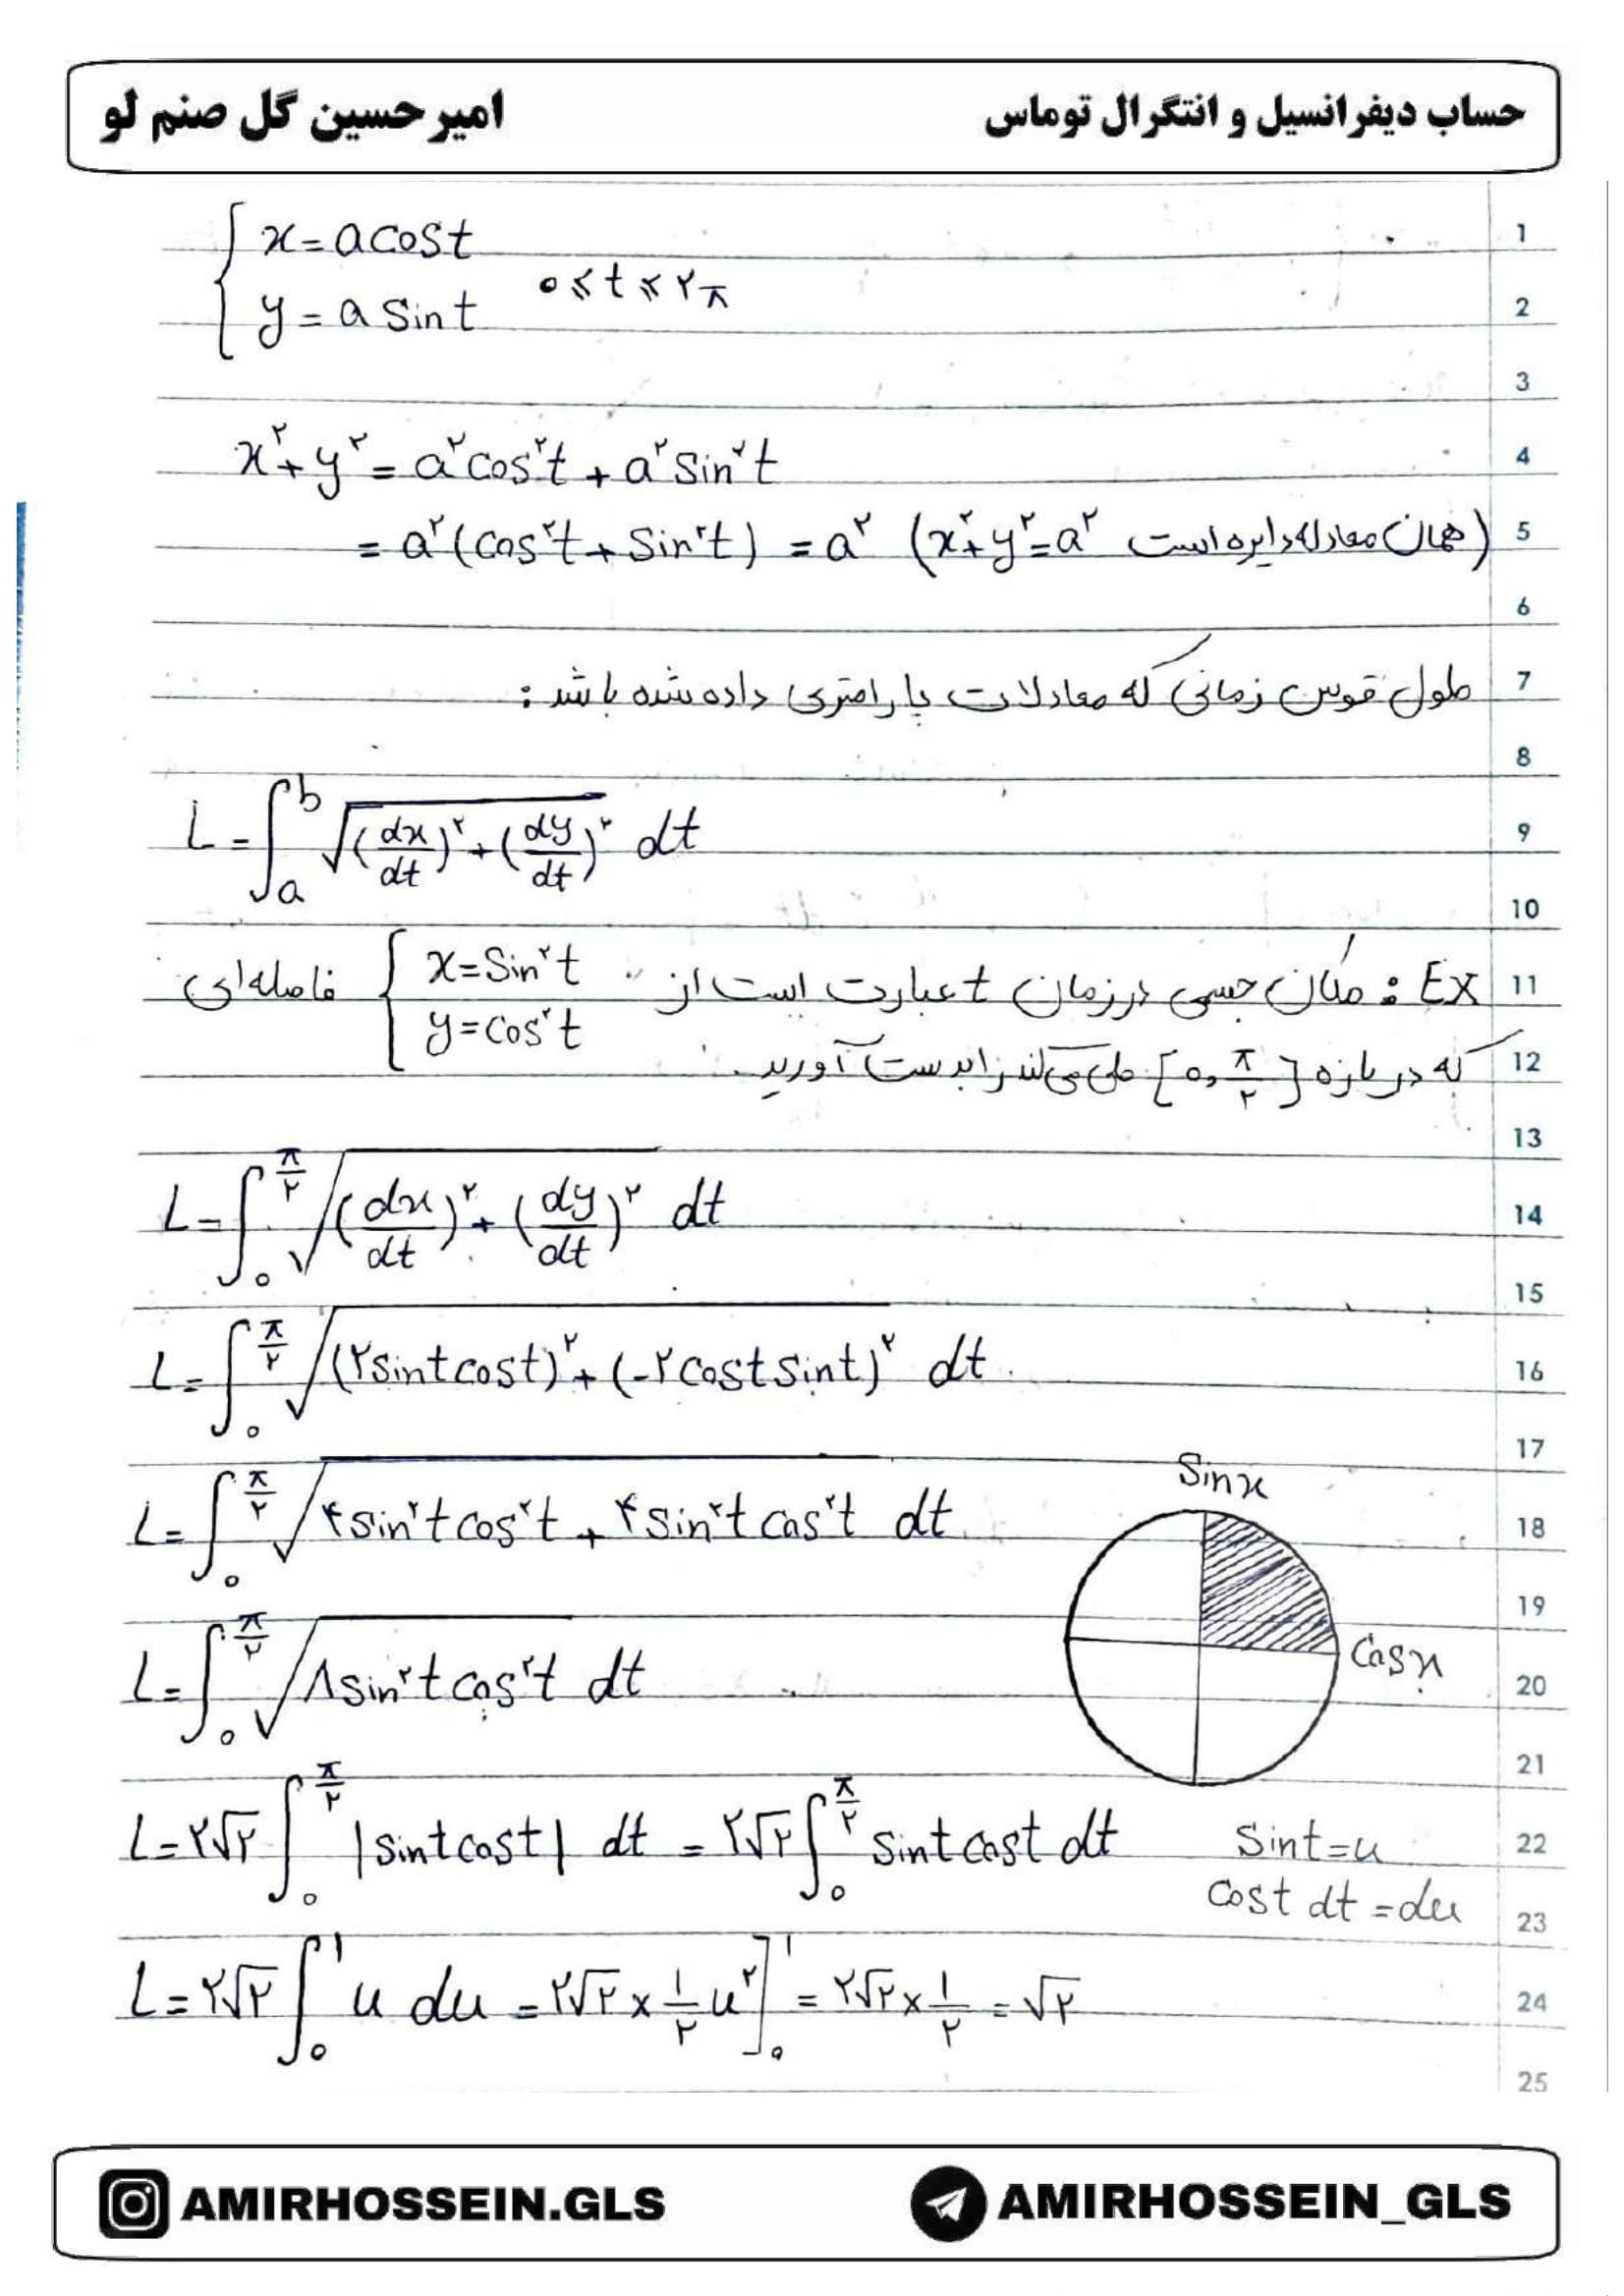 حساب دیفرانسیل و انتگرال توماس
امیرحسین گل صنم لو
1
{ x = a cos t
۰ ≤ t ≤ ۲π
2
y = a sin t
3
4
x² + y² = a² cos² t + a² sin² t
5
= a² (cos² t + sin² t) = a² (x² + y² = a² همان معادله دایره است)
6
7
طول قوس زمانی که معادلات پارامتری داده شده باشد :
8
9
L = ∫ₐᵇ √((dx/dt)² + (dy/dt)²) dt
10
11
EX : مکان جسمی در زمان t عبارت است از { x = sin² t , y = cos² t فاصله‌ای
12
که در بازه [۰, π/۲] طی می‌کند را بدست آورید.
13
14
L = ∫₀^(π/۲) √((dx/dt)² + (dy/dt)²) dt
15
16
L = ∫₀^(π/۲) √((۲ sin t cos t)² + (-۲ cos t sin t)²) dt
17
Sin x
18
L = ∫₀^(π/۲) √(۴ sin² t cos² t + ۴ sin² t cos² t) dt
19
Cos x
20
L = ∫₀^(π/۲) √(۸ sin² t cos² t) dt
21
22
L = ۲√۲ ∫₀^(π/۲) |sin t cos t| dt = ۲√۲ ∫₀^(π/۲) sin t cos t dt
Sin t = u
23
Cos t dt = du
24
L = ۲√۲ ∫₀¹ u du = ۲√۲ × ۱/۲ u²]₀¹ = ۲√۲ × ۱/۲ = √۲
25
AMIRHOSSEIN.GLS
AMIRHOSSEIN_GLS